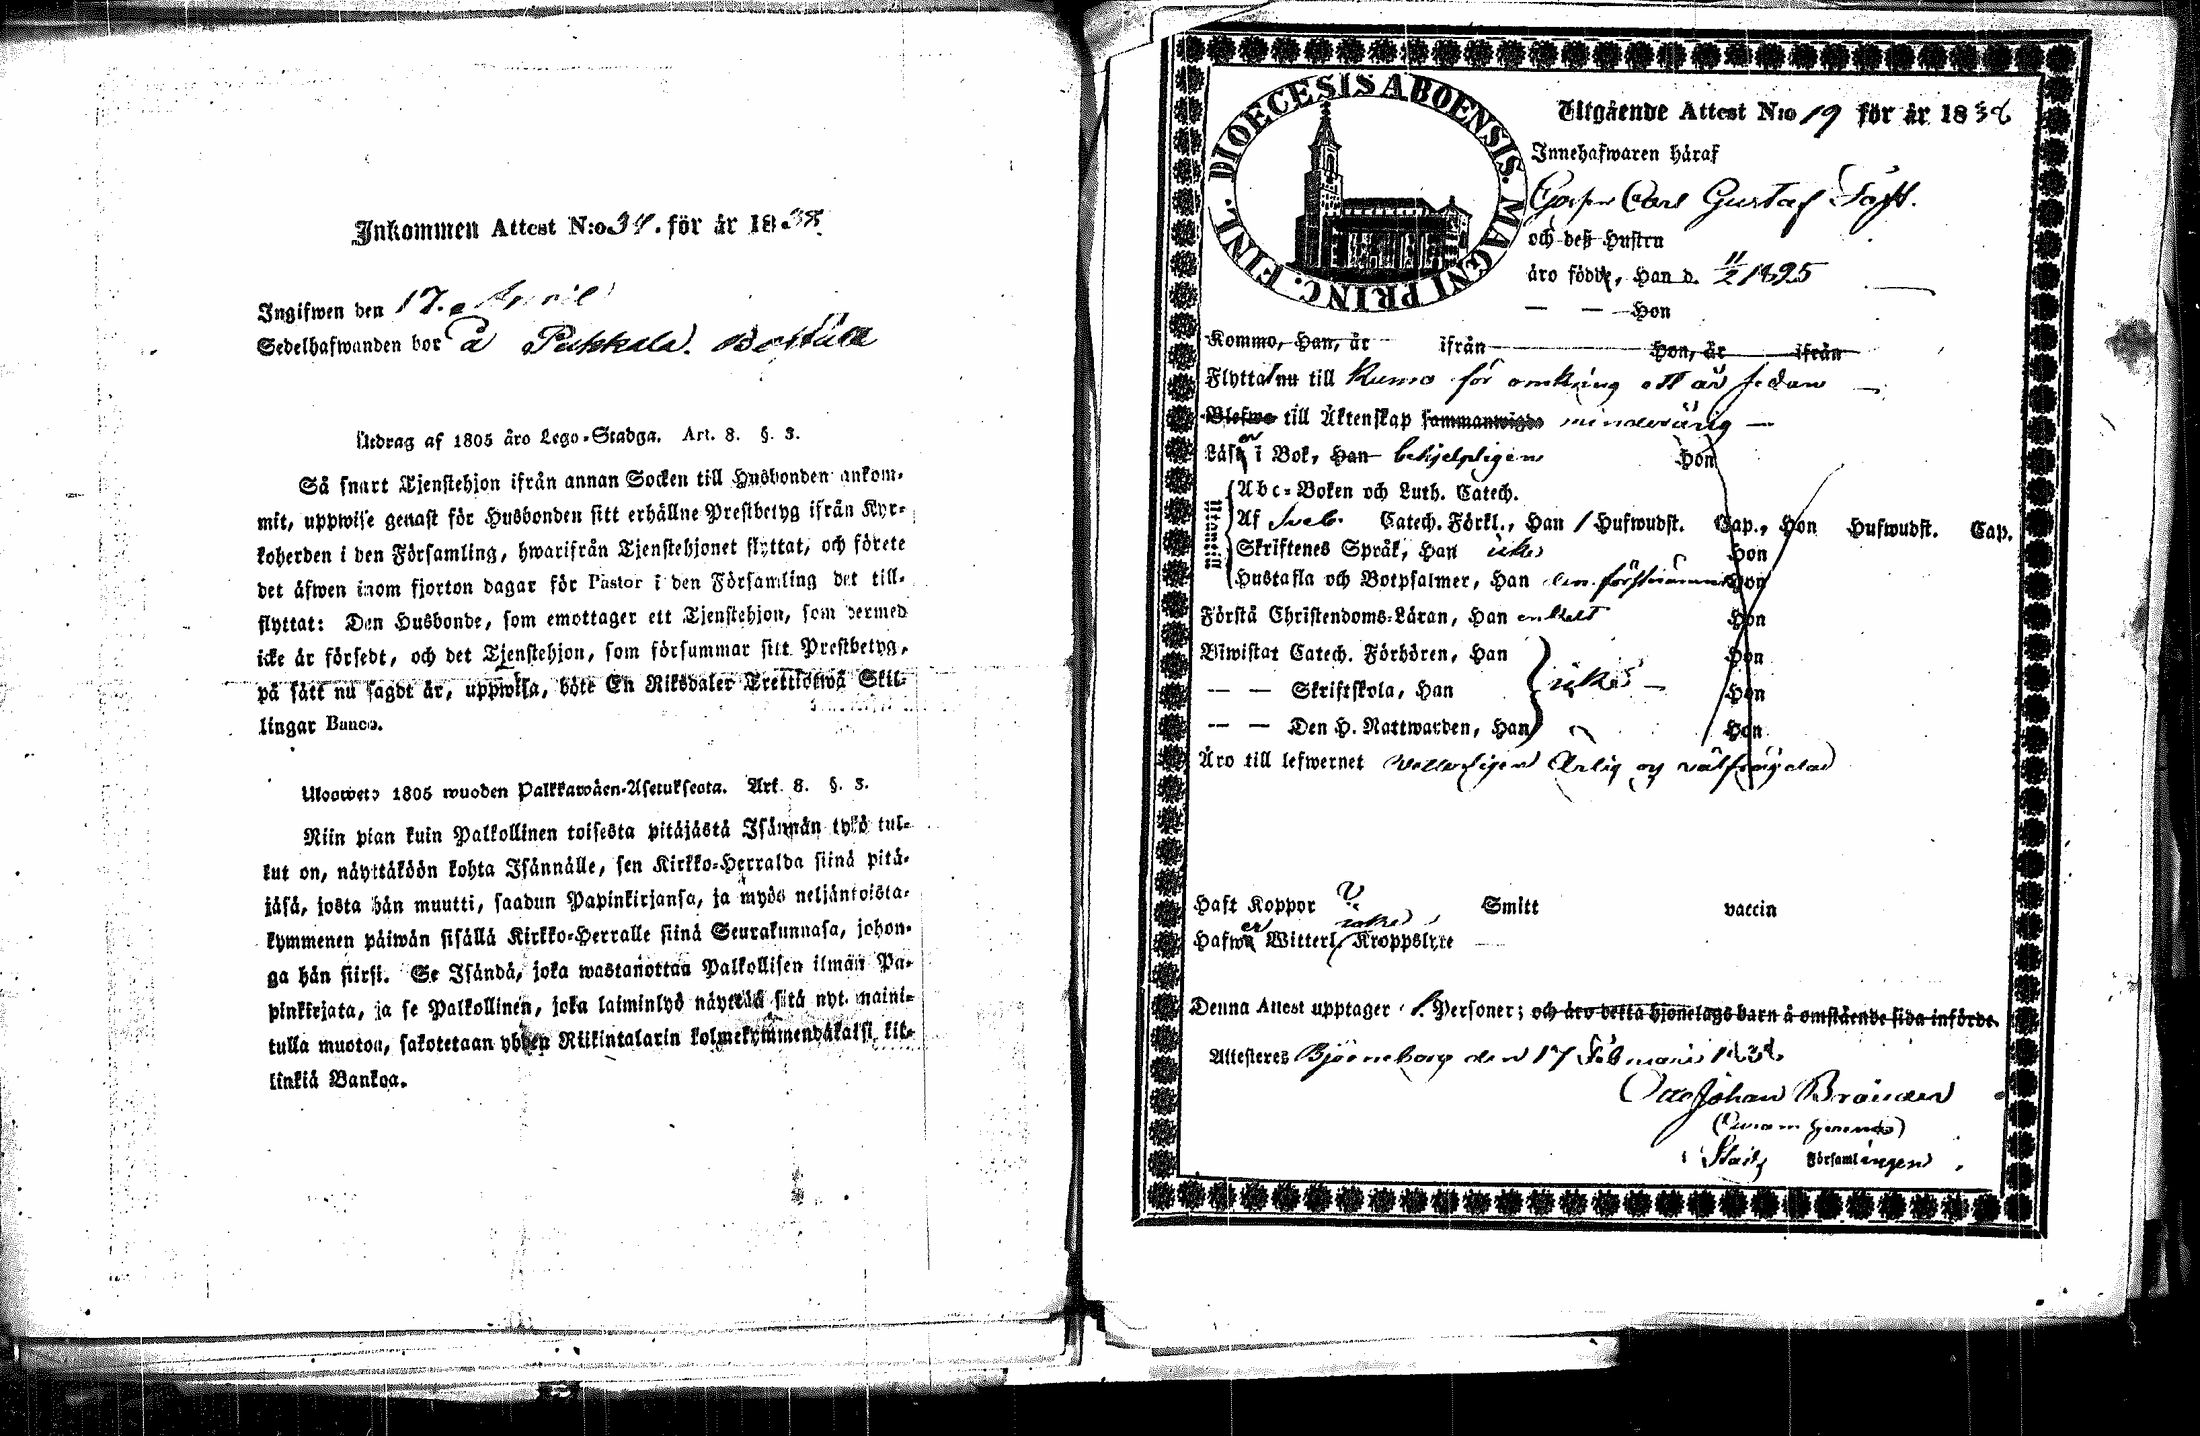 Inkommen Attest N:o 34. för år 1838.
Ingifwen den 17. April
Sedelhafwanden bor å Pukkala. Boställe
Utdrag af 1805 åro Lego-Stadga. Art. 8. §. 3.
Så snart Tjenstehjon ifrån annan Socken till Husbonden ankom-
mit, uppwise genast för Husbonden sitt erhållne Prestbetyg ifrån Kyr-
koherden i den Församling, hwarifrån Tjenstehjonet flyttat, och förete
det äfwen inom fjorton dagar för Pastor i den Församling det till-
flyttat: Den Husbonde, som emottager ett Tjenstehjon, som dermed
icke är försedt, och det Tjenstehjon, som försummar sitt Prestbetyg,
på sätt nu sagdt är, uppwisa, böte En Riksdaler Trettiotwå Skil-
lingar Banco.
Ulosweto 1805 wuoden Palkkawäen-Asetuksesta. Art. 8. §. 3.
Niin pian kuin Palkollinen toisesta pitäjästä Isännän tykö tul-
kut on, näyttäköön kohta Isännälle, sen Kirkko-Herralda siinä pitä-
jäsä, josta hän muutti, saadun Papinkirjansa, ja myös neljäntoista-
kymmenen päiwän sisällä Kirkko-Herralle siinä Seurakunnasa, johon-
ga hän siirsi. Se Isändä, joka wastanottaa Palkollisen ilman Pa-
pinkirjata, ja se Palkollinen, joka laiminlyö näyttää sitä nyt maini-
tulla muoton, sakotetaan yhden Riikintalarin kolmekymmendäkaksi kil-
linkiä Bankoa.
DIOECESIS ABOENSIS. MAGNI PRINC. FINL.
Utgående Attest N:o 19 för år 1838
Innehafwaren häraf
Carl Gustaf
och deß Hustru
äro födde, Han d. 11/2 1825
— — Hon
Kommo, Han, år ifrån Hon, år ifrån
Flytta nu till Kumo för omkring ett år sedan
Blefwo till Äktenskap sammanwigde minderårig
Läser i Bok, Han behjelpligen Hon
Utantill
Abc-Boken och Luth. Catech.
Af Sveb. Catech. Förkl., Han 1 Hufwudst. Cap., Hon Hufwudst. Cap.
Skriftenes Språk, Han icke Hon
Hustafla och Botpsalmer, Han den förstnämnda Hon
Förstå Christendoms-Läran, Han enkelt Hon
Biwistat Catech. Förhören, Han Hon
— — Skriftskola, Han icke Hon
— — Den H. Nattwarden, Han Hon
Äro till lefwernet Ärlig och välfrägdad
Haft Koppor V. Smitt vaccin
Hafwer Witterl. icke Kroppslyte
Denna Attest upptager 1. Personer; och äro detta hjonelags barn å omstående sida införde.
Attesteres Björneborg den 17 Februarii 1838.
Otto Johan
Församlingen